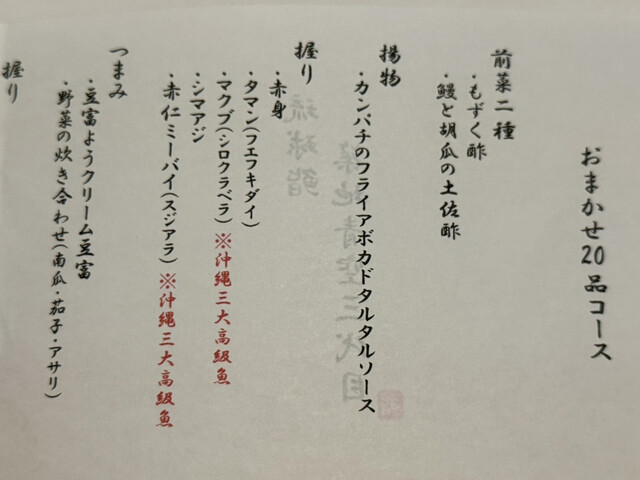 おまかせ20品コース
前菜二種
・もずく酢
・鰻と胡瓜の土佐酢
揚物
・カンパチのフライアボカドタルタルソース
握り
・赤身
・タマン(フエフキダイ)
・マクブ(シロクラベラ)※沖縄三大高級魚
・シマアジ
・赤仁ミーバイ(スジアラ)※沖縄三大高級魚
つまみ
・豆富ようクリーム豆富
・野菜の炊き合わせ(南瓜・茄子・アサリ)
握り
琉球鮨
築地青空三代目